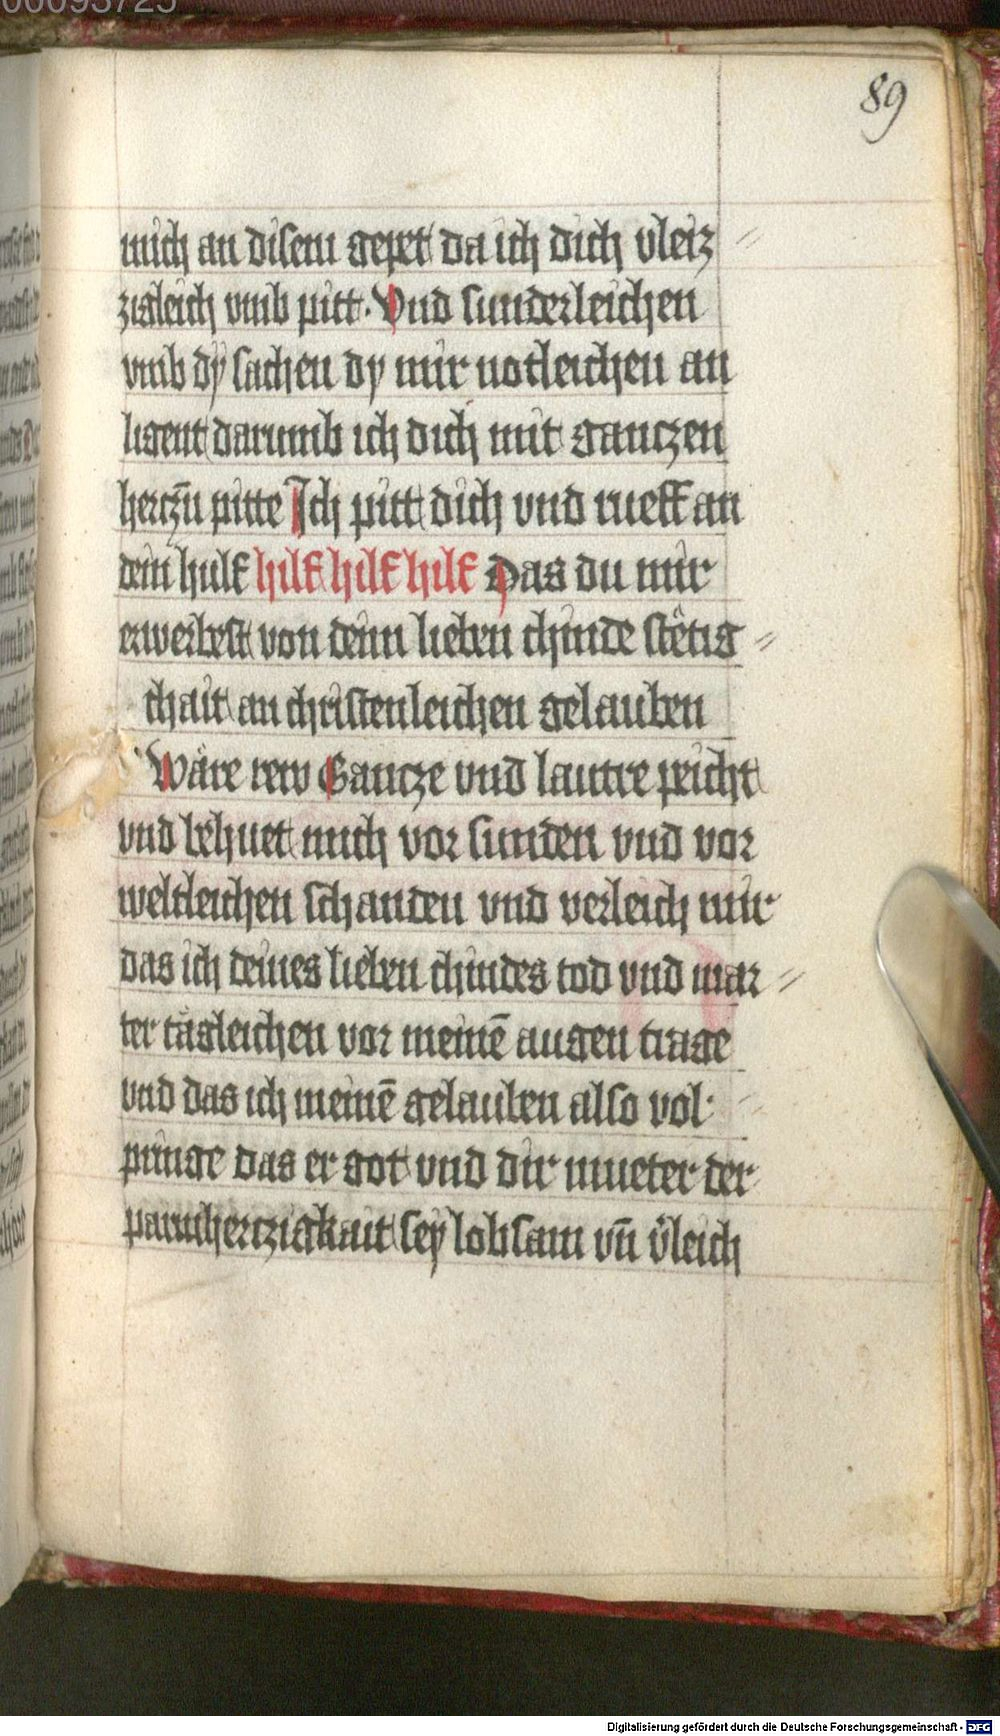 89
mich an disem gepet da ich dich vleiz //
zigleich vmb pitt. Vnd sunderleichen
vmb dÿ sachen dy mir notleichen an
ligent darumb ich dich mit ganczen
herczn̄ pitte Ich pitt dich vnd rueff an
dein hulf hilf hilf hilf Das du mir
erwerbest von deinn lieben chinde stëtig //
chait an christenleichen gelauben
Wäre rew Gancze vnd lautre peicht
vnd behuet mich vor sunden vnd vor
weltleichen schanden vnd verleich mir
das ich deines lieben chindes tod vnd mar //
ter tägleichen vor meinē augen trage
vnd das ich meinē gelauben also vol //
pringe das er got vnd dir mueter der
parmherczigkait sey lobsam vn̄ v̈leich
Digitalisierung gefördert durch die Deutsche Forschungsgemeinschaft - DFG